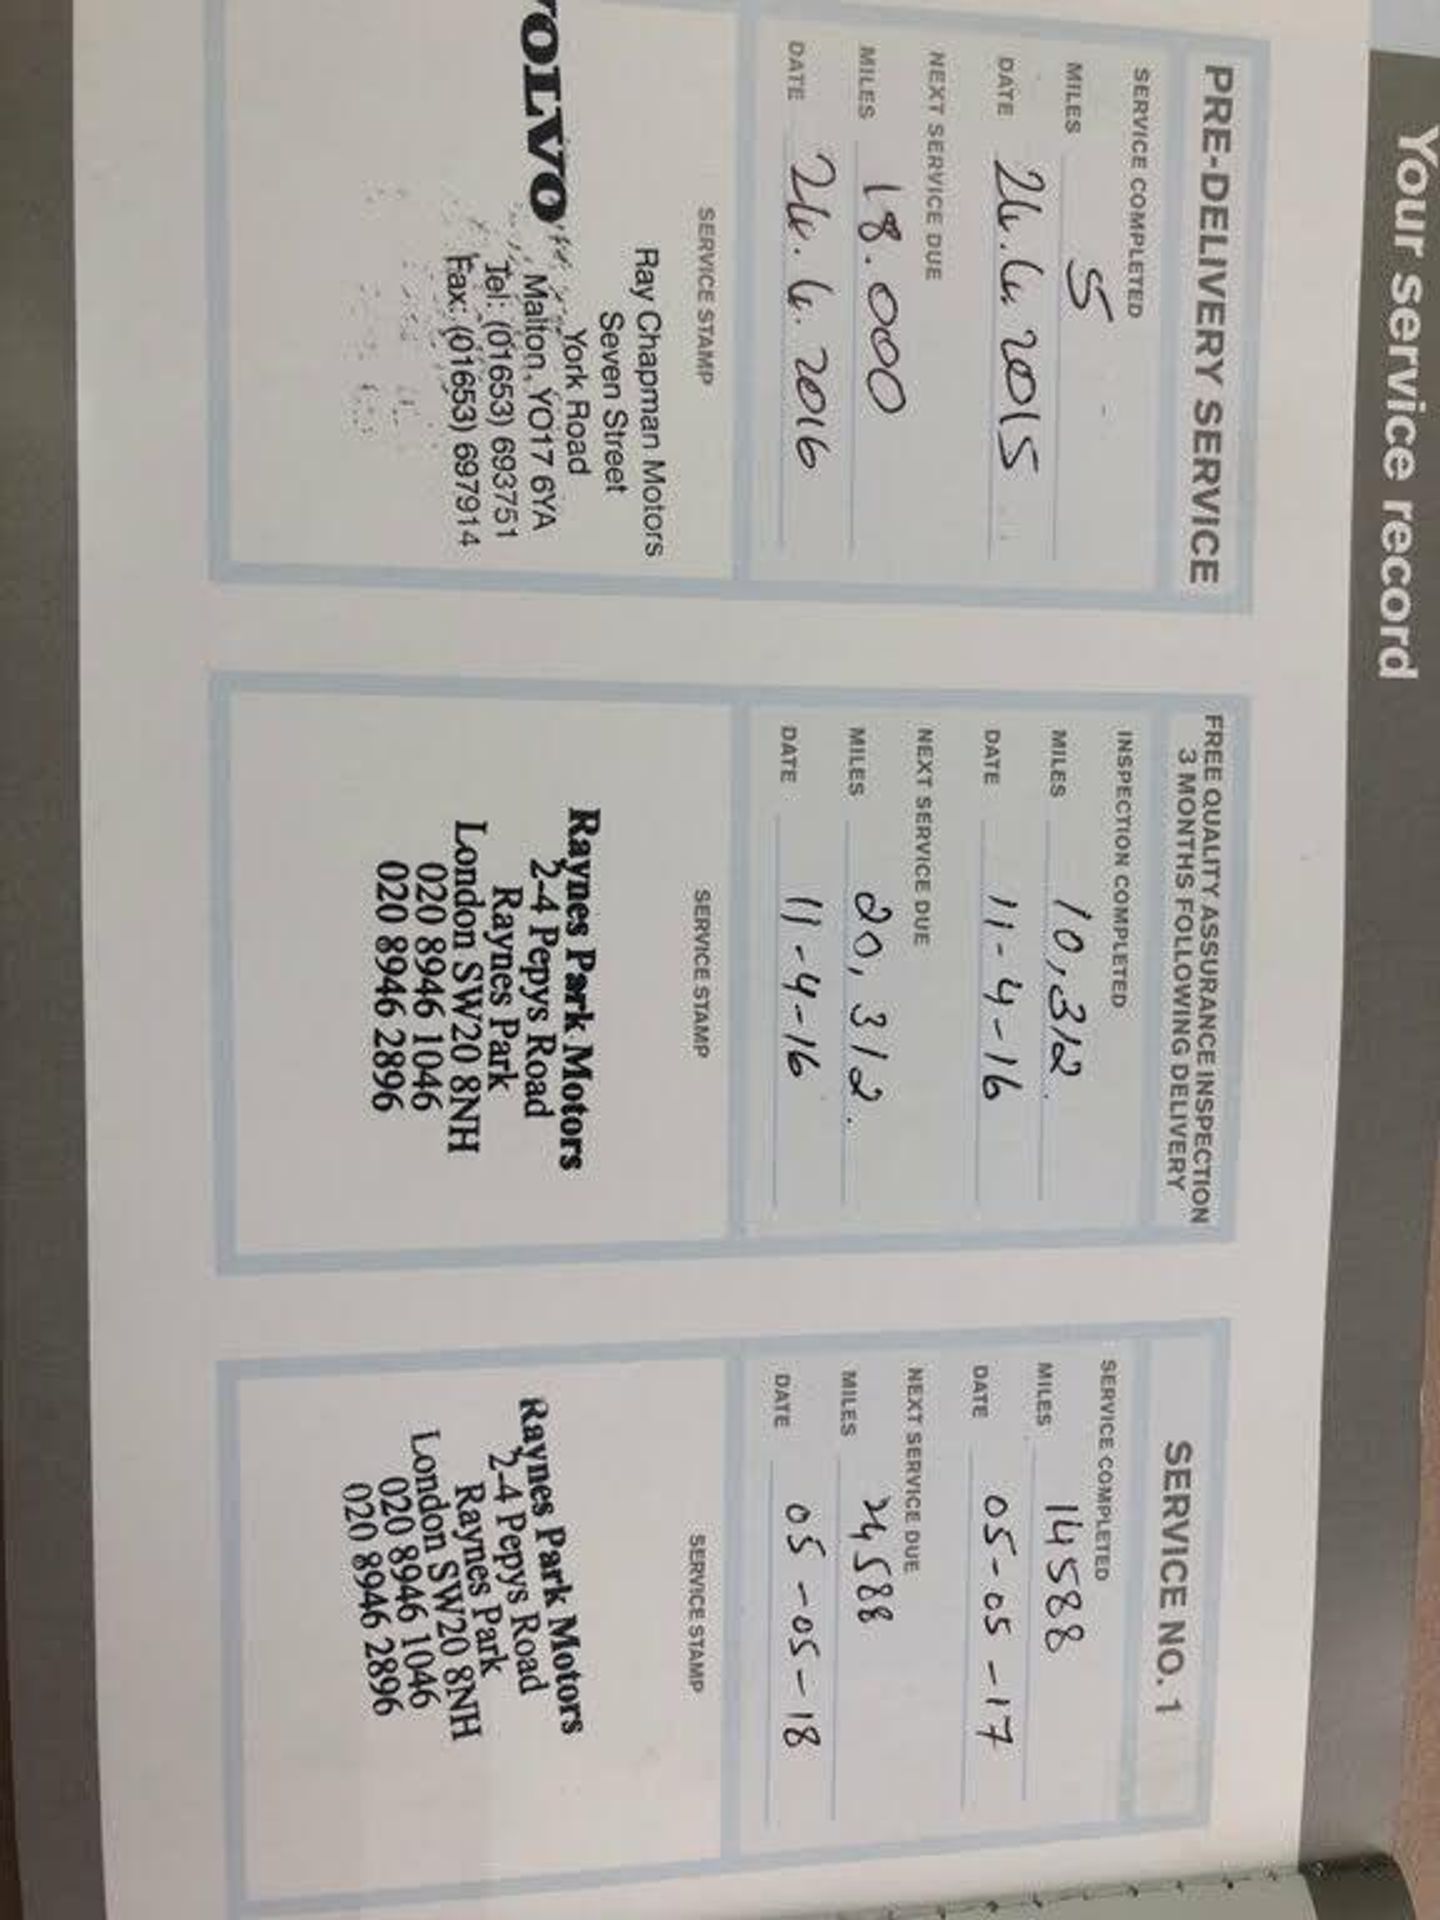 Your service record
PRE-DELIVERY SERVICE
SERVICE COMPLETED
MILES 5
DATE 24.4.2015
NEXT SERVICE DUE
MILES 18.000
DATE 24.4.2016
SERVICE STAMP
Ray Chapman Motors
Seven Street
York Road
VOLVO
Malton, YO17 6YA
Tel: (01653) 693751
Fax: (01653) 697914
FREE QUALITY ASSURANCE INSPECTION
3 MONTHS FOLLOWING DELIVERY
INSPECTION COMPLETED
MILES 10,312.
DATE 11-4-16
NEXT SERVICE DUE
MILES 20,312.
DATE 11-4-16
SERVICE STAMP
Raynes Park Motors
2-4 Pepys Road
Raynes Park
London SW20 8NH
020 8946 1046
020 8946 2896
SERVICE NO. 1
SERVICE COMPLETED
MILES 14588
DATE 05-05-17
NEXT SERVICE DUE
MILES 24588
DATE 05-05-18
SERVICE STAMP
Raynes Park Motors
2-4 Pepys Road
Raynes Park
London SW20 8NH
020 8946 1046
020 8946 2896